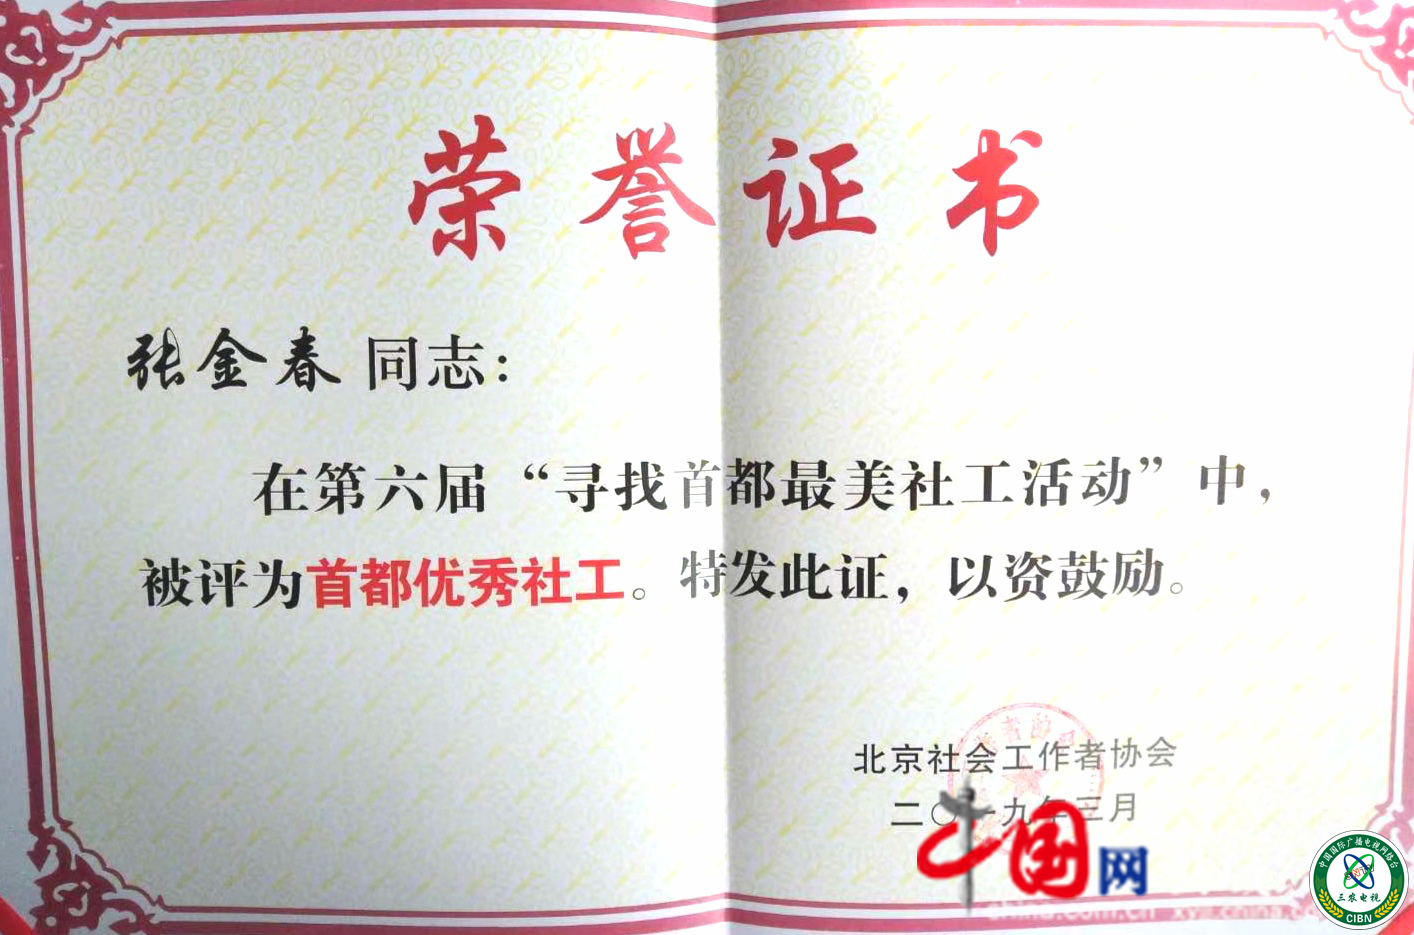 荣誉证书
张金春 同志：
在第六届“寻找首都最美社工活动”中，
被评为首都优秀社工。特发此证，以资鼓励。
北京社会工作者协会
二〇一九年三月
中国网
china.com.cn
中国国际广播电视网络台
三农电视
CIBN